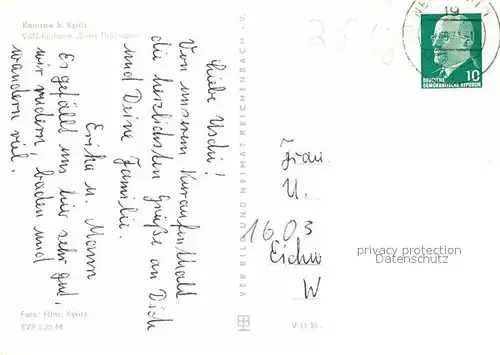 Karnzow b. Kyritz
VdN-Kurheim „Ernst Thälmann“
Liebe Uschi!
Von unserem Kuraufenthalt
die herzlichsten Grüße an Dich
und Deine Familie.
Erika u. Mann
Es gefällt uns hier sehr gut,
wir rudern, baden und
wandern viel.
Foto: Kyritz
EVP 0,20 M
VEB BILD UND HEIMAT REICHENBACH i. V.
V 11 50
19
DEUTSCHE
DEMOKRATISCHE REPUBLIK
10
Frau
U.
1603
Eichw
W
privacy protection
Datenschutz